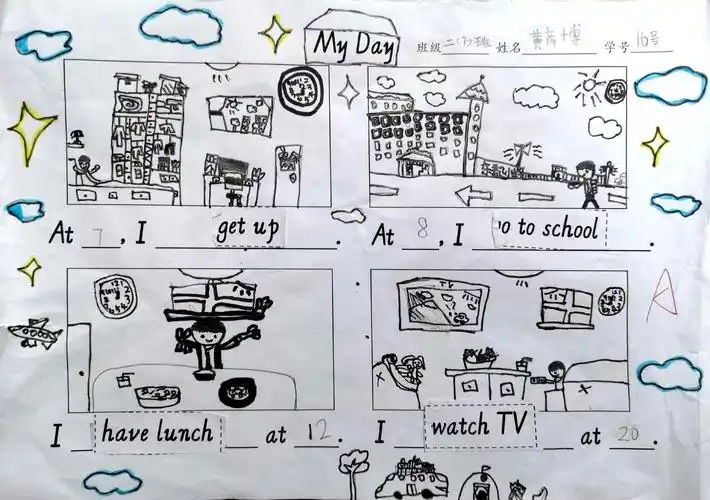 My Day
班级 二(7)班 姓名 学号 16号
At 7, I get up.
At 8, I o to school.
TV
I have lunch at 12.
I watch TV at 20.
A